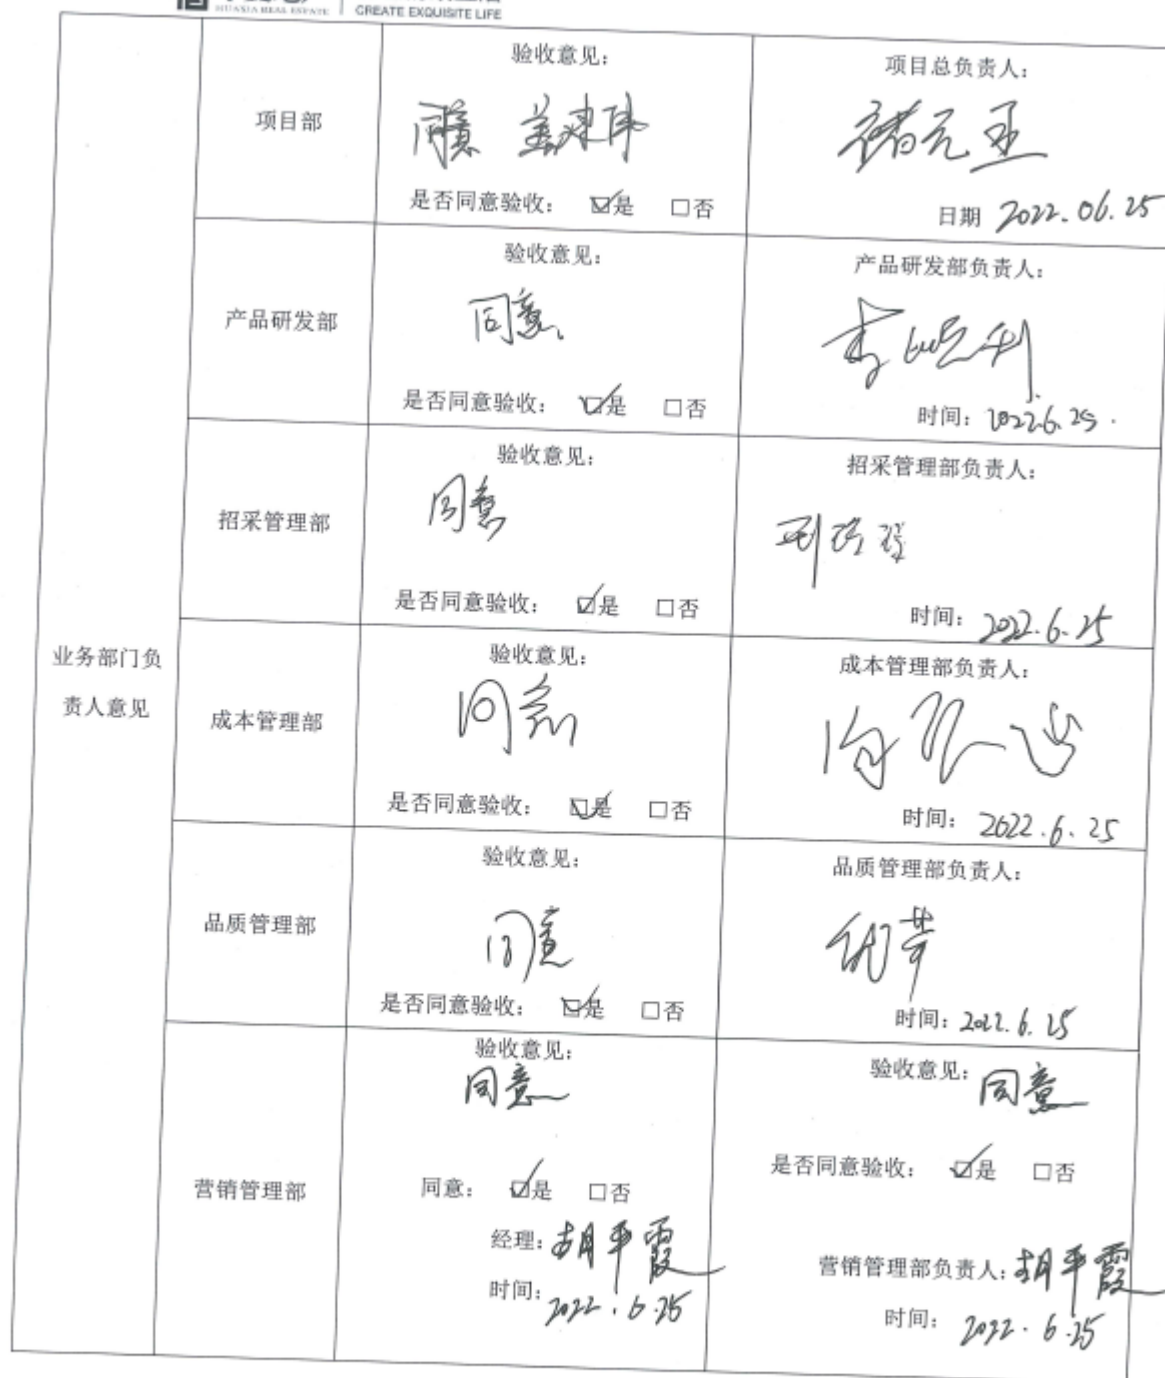 HUAXIA REAL ESTATE
CREATE EXQUISITE LIFE
业务部门负
责人意见
项目部
验收意见:
同意
是否同意验收: ☑是 □否
项目总负责人:
日期 2022.06.25
产品研发部
验收意见:
同意
是否同意验收: ☑是 □否
产品研发部负责人:
时间: 2022.6.25.
招采管理部
验收意见:
同意
是否同意验收: ☑是 □否
招采管理部负责人:
时间: 2022.6.25
成本管理部
验收意见:
同意
是否同意验收: ☑是 □否
成本管理部负责人:
时间: 2022.6.25
品质管理部
验收意见:
同意
是否同意验收: ☑是 □否
品质管理部负责人:
时间: 2022.6.25
营销管理部
验收意见:
同意
同意: ☑是 □否
经理: 胡平霞
时间: 2022.6.25
验收意见: 同意
是否同意验收: ☑是 □否
营销管理部负责人: 胡平霞
时间: 2022.6.25